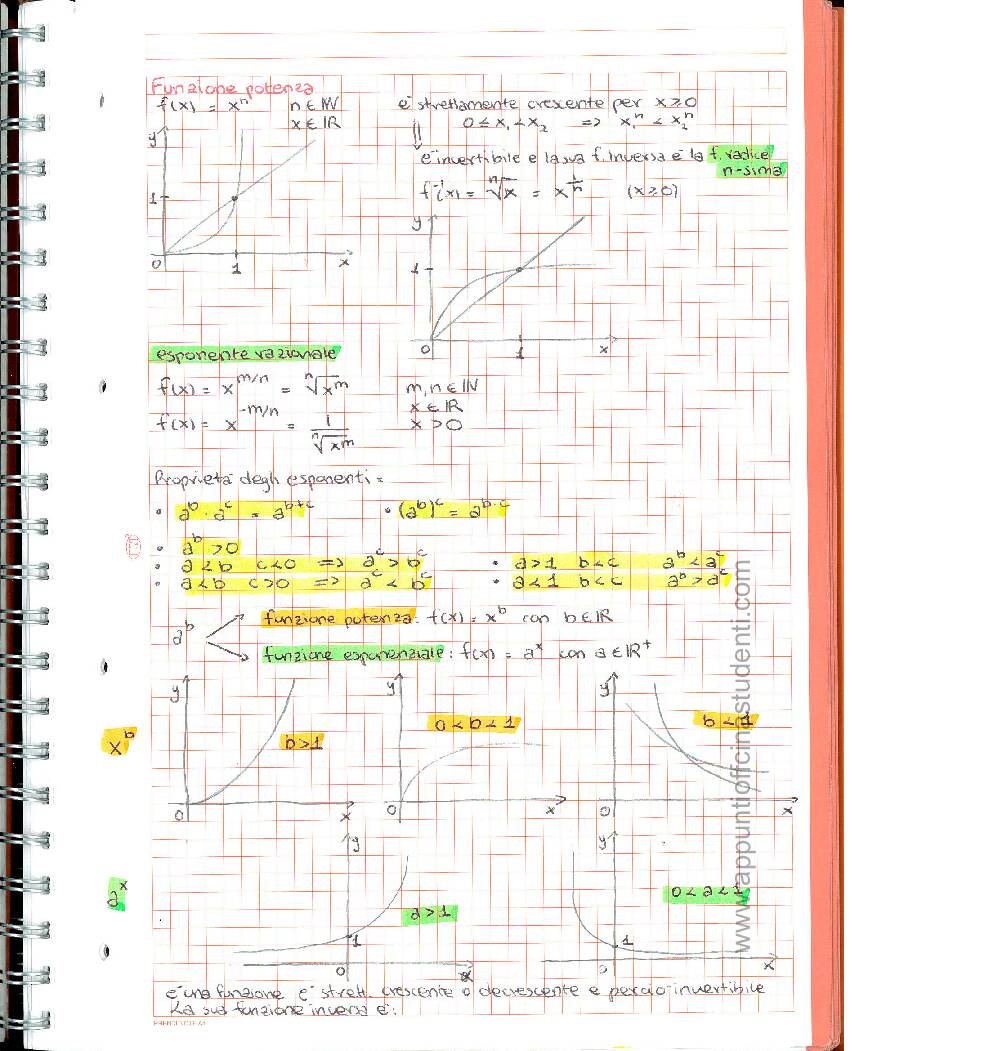 Funzione potenza
f(x) = xⁿ n ∈ ℕ
x ∈ ℝ
è strettamente crescente per x ≥ 0
0 ≤ x₁ < x₂ => x₁ⁿ < x₂ⁿ
è invertibile e la sua f. inversa è la f. radice
n-sima
f⁻¹(x) = ⁿ√x = x^(1/n) (x ≥ 0)
y
1
0 1 x
y
1
0 1 x
esponente razionale
f(x) = x^(m/n) = ⁿ√x^m m, n ∈ ℕ
x ∈ ℝ
f(x) = x^(-m/n) = 1/ⁿ√x^m x > 0
Proprietà degli esponenti:
• a^b · a^c = a^(b+c) • (a^b)^c = a^(b·c)
• a^b > 0
• a < b c < 0 => a^c > b^c • a > 1 b < c a^b < a^c
• a < b c > 0 => a^c < b^c • a < 1 b < c a^b > a^c
a^b
funzione potenza: f(x) = x^b con b ∈ ℝ
funzione esponenziale: f(x) = a^x con a ∈ ℝ⁺
x^b
y
b > 1
0 x
y
0 < b < 1
0 x
y
b < 1
0 x
a^x
y
a > 1
1
0 x
y
0 < a < 1
1
0 x
è una funzione è strett. crescente o decrescente e perciò invertibile
La sua funzione inversa è:
www.appuntiofficinastudenti.com